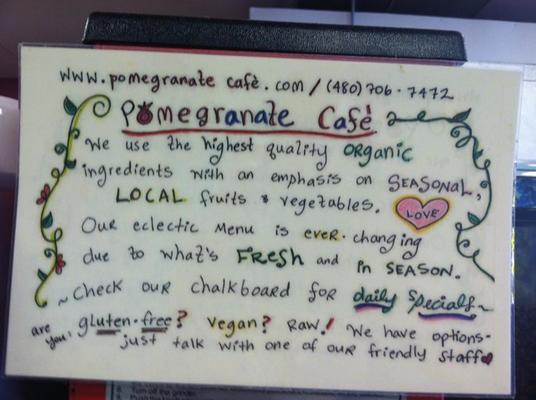 www.pomegranate cafè.com / (480) 706-7472
Pomegranate Cafè
We use the highest quality ORGANIC
ingredients with an emphasis on SEASONAL,
LOCAL fruits & vegetables.
LOVE
Our eclectic menu is ever-changing
due to what's FRESH and in SEASON.
~Check our chalkboard for daily specials~
are you: gluten-free? vegan? RAW! We have options-
just talk with one of our friendly staff